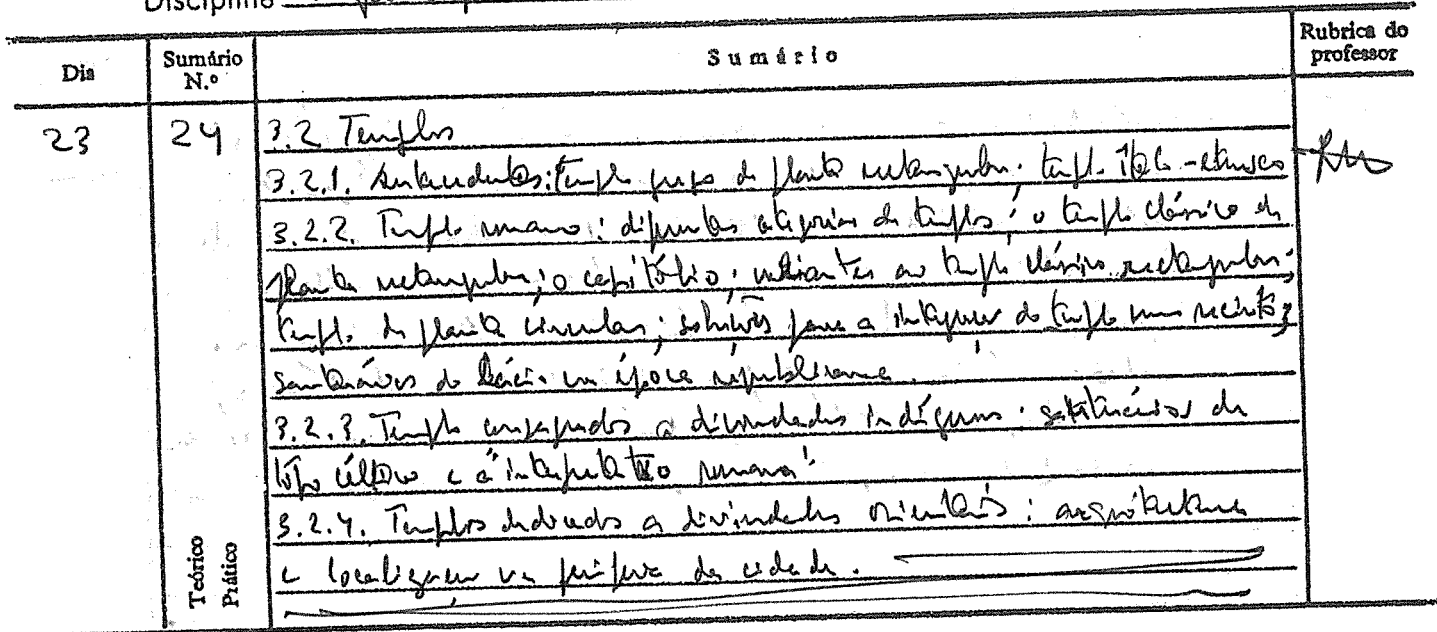 Disciplina
Dia
Sumário N.º
Sumário
Rubrica do professor
23
24
3.2 Templos
3.2.1. Antecedentes: templo grego de planta rectangular; templo ítalo-etrusco
3.2.2. Templo romano: diferentes categorias de templos; o templo clássico de
planta rectangular; o capitólio; variantes ao templo clássico rectangular;
templo de planta circular; soluções para a integração do templo num recinto;
santuários do Lácio na época republicana.
3.2.3. Templo consagrados a divindades indígenas: santuários de
tipo céltico e a "interpretatio romana"
3.2.4. Templos dedicados a divindades orientais: arquitectura
e localização na periferia da cidade.
Teórico
Prático